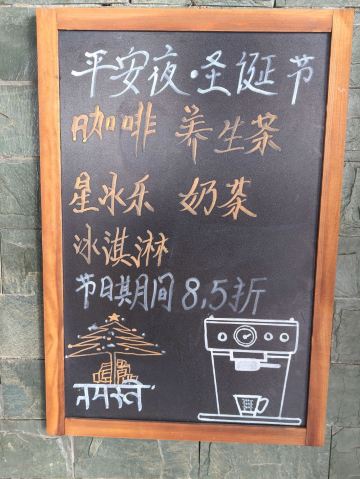 平安夜·圣诞节
咖啡 养生茶
星冰乐 奶茶
冰淇淋
节日期间8.5折
नमस्ते